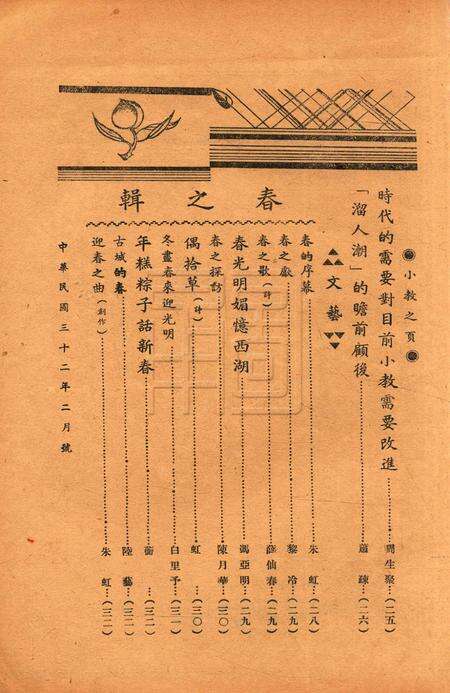 小教之頁
時代的需要對目前小教需要改進⋯⋯周生聚⋯(二五)
「溜人潮」的瞻前顧後⋯⋯蕭疎⋯(二六)
文藝
春之輯
春的序幕⋯⋯朱虹⋯(二八)
春之獻⋯⋯黎冷⋯(二九)
春之歌(詩)⋯⋯薛仙春⋯(二九)
春光明媚憶西湖⋯⋯馮亞明⋯(二九)
春之探訪⋯⋯陳月華⋯(三〇)
偶拾草(詩)⋯⋯虹⋯(三〇)
冬盡春來迎光明⋯⋯白里予⋯(三一)
年糕粽子話新春⋯⋯衛⋯(三二)
古城的春⋯⋯陸藝⋯(三二)
迎春之曲(創作)⋯⋯朱虹⋯(三二)
中華民國三十二年二月號